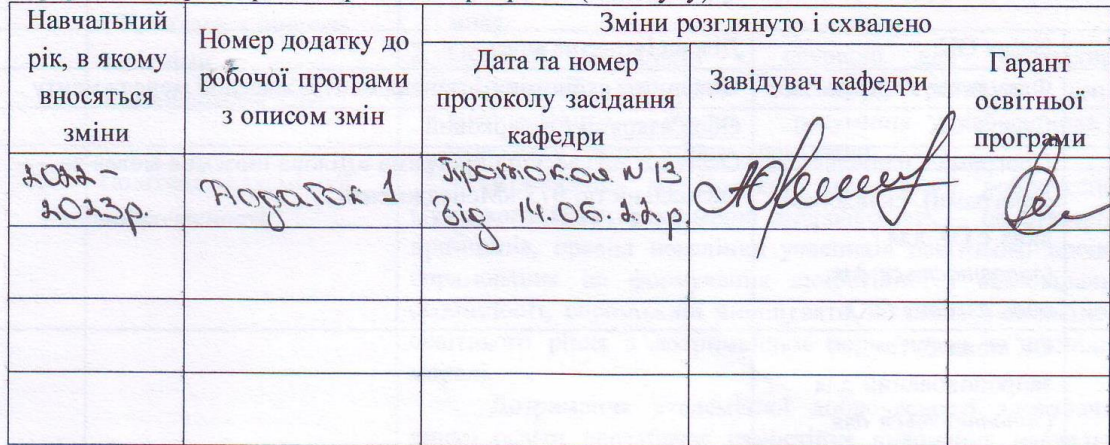 Навчальний
рік, в якому
вносяться
зміни
Номер додатку до
робочої програми
з описом змін
Зміни розглянуто і схвалено
Дата та номер
протоколу засідання
кафедри
Завідувач кафедри
Гарант
освітньої
програми
2022-
2023р.
Додаток 1
Протокол N 13
Від 14.06.22р.